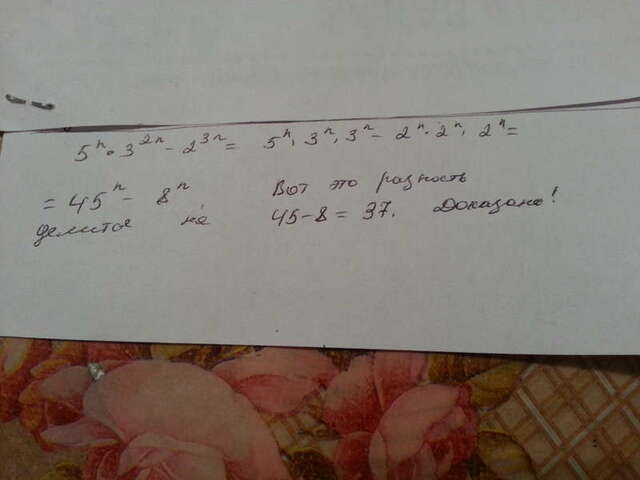 5ⁿ · 3²ⁿ - 2³ⁿ = 5ⁿ · 3ⁿ · 3ⁿ - 2ⁿ · 2ⁿ · 2ⁿ =
= 45ⁿ - 8ⁿ Вот это разность
делится на 45-8 = 37. Доказано!